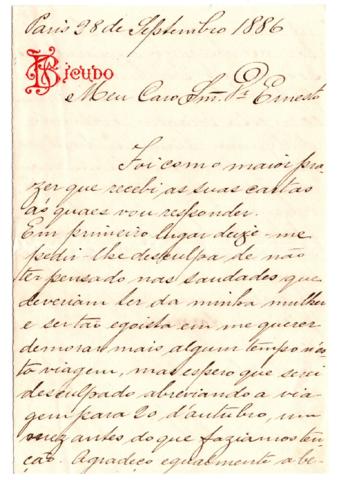 Paris 28 de Septembro 1886
Bicudo
Meu Caro Snr. Dr. Ernesto
Foi como maior pra
zer que recebi as suas cartas
ás quaes vou responder.
Em primeiro lugar deixe-me
pedir-lhe desculpa de não
ter pensado nas saudades que
deveriam ser da minha mulher
e ser tão egoista em me querer
demorar mais algum tempo n'es
ta viagem, mas espero que serei
desculpado abreviando a via
gem para 20 d'outubro, um
mez antes do que faziamos ten
ção. Agradeço egualmente a be-